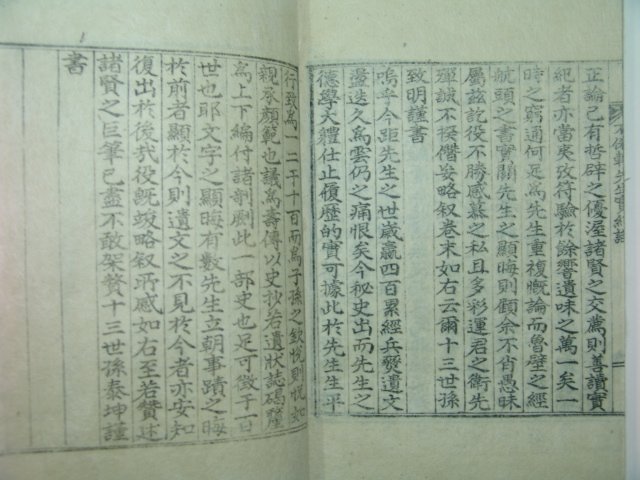 正論已有哲辟之優渥諸賢之交薦則善讀實
紀者亦當矣攷符驗於餘響遺味之萬一矣一
時之窮通何足爲先生重複慨論而魯壁之經
航頭之書實顯先生之顯晦則顧余不肖愚昧
屬玆訖役不勝感慕之私且多彩運君之衛先
殫誠不揆僭妄略叙卷末如右云爾十三世孫
致明謹書
嗚乎今距先生之世歲贏四百累經兵燹遺文
蕩迭久爲雲仍之痛恨矣今秘史出而先生之
德學大軆仕止履歷的實可據此於先生生平
行致爲一二千十百而爲子孫之欽悅則悅如
親承顔範也議爲壽傳以史抄若遺狀誌碣釐
爲上下編付諸剞劂此一部史也足可徵于百
世也耶文字之顯晦有數先生立朝事蹟之晦
於前者顯於今則遺文之不見於今者亦安知
復出於後㢤役旣竣略叙所感如右至若贊述
諸賢之巨筆已盡不敢架贅十三世孫泰坤謹
書